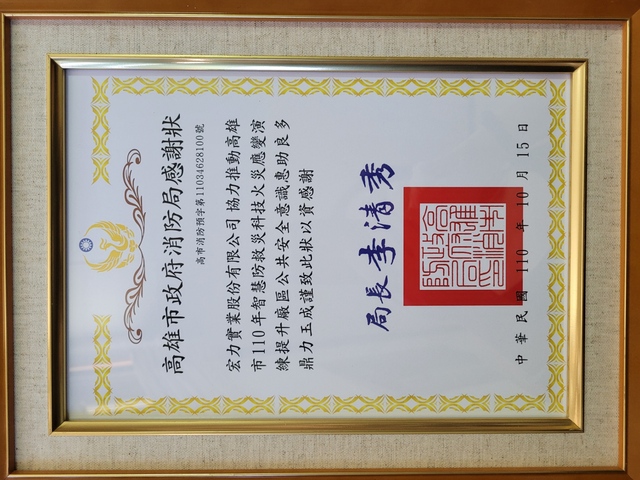 高雄市政府消防局感謝狀
高市消防預字第11034628100號
宏力實業股份有限公司協力推動高雄
市110年智慧防救災科技火災應變演
練提升廠區公共安全意識惠助良多
鼎力玉成謹致此狀以資感謝
局長李清秀
中華民國110年10月15日